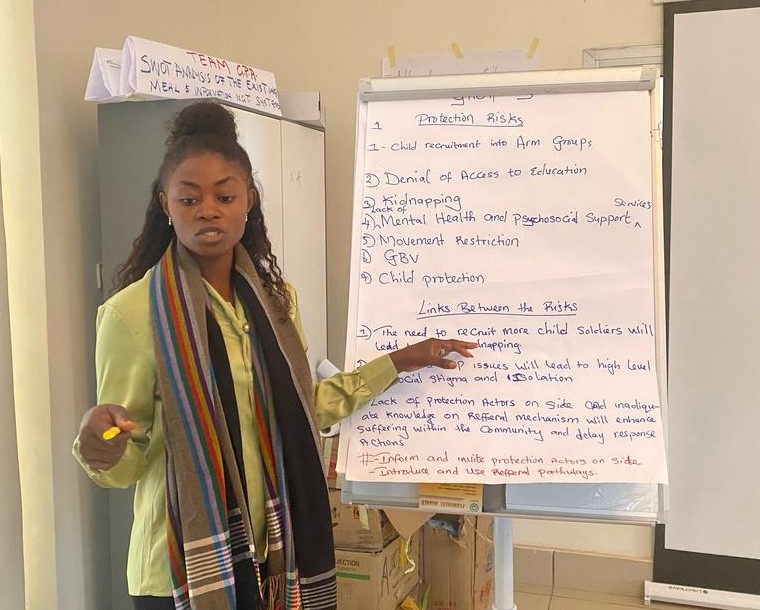 TEAM GRA
SWOT ANALYSIS OF THE EXIST
MEAL & INFORMATION MGT SYSTEMS
Protection Risks
1
1- Child recruitment into Arm Groups
2) Denial of Access to Education
3) Kidnapping
Services
Lack of
4) Mental Health and Psychosocial Support ^
5) Movement Restriction
6) GBV
7) Child protection
Links Between the Risks
1) The need to recruit more child soldiers will
lead napping.
P issues will lead to high level
social stigma and isolation
Lack of protection Actors on side and inadiqu-
ate knowledge on Refferal mechanism will enhance
suffering within the Community and delay response
Actions
# - Inform and invite protection Actors on side
- Introduce and Use Refferal pathways.
JECTION